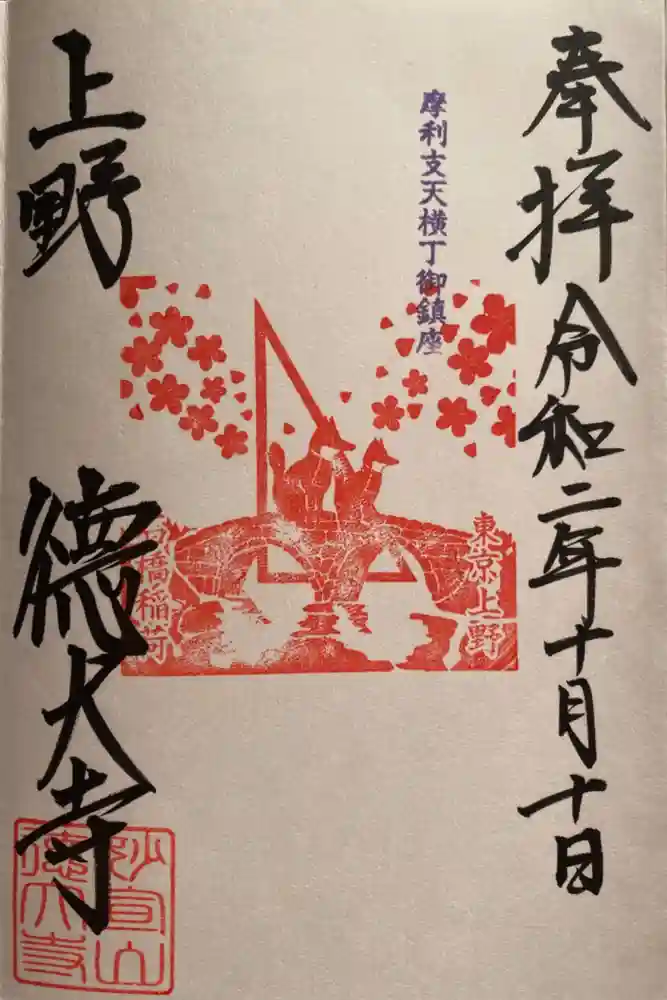 奉拝 令和二年十月十日
摩利支天横丁御鎮座
東京上野
橋稲荷
上野 徳大寺
妙宣山
徳大寺